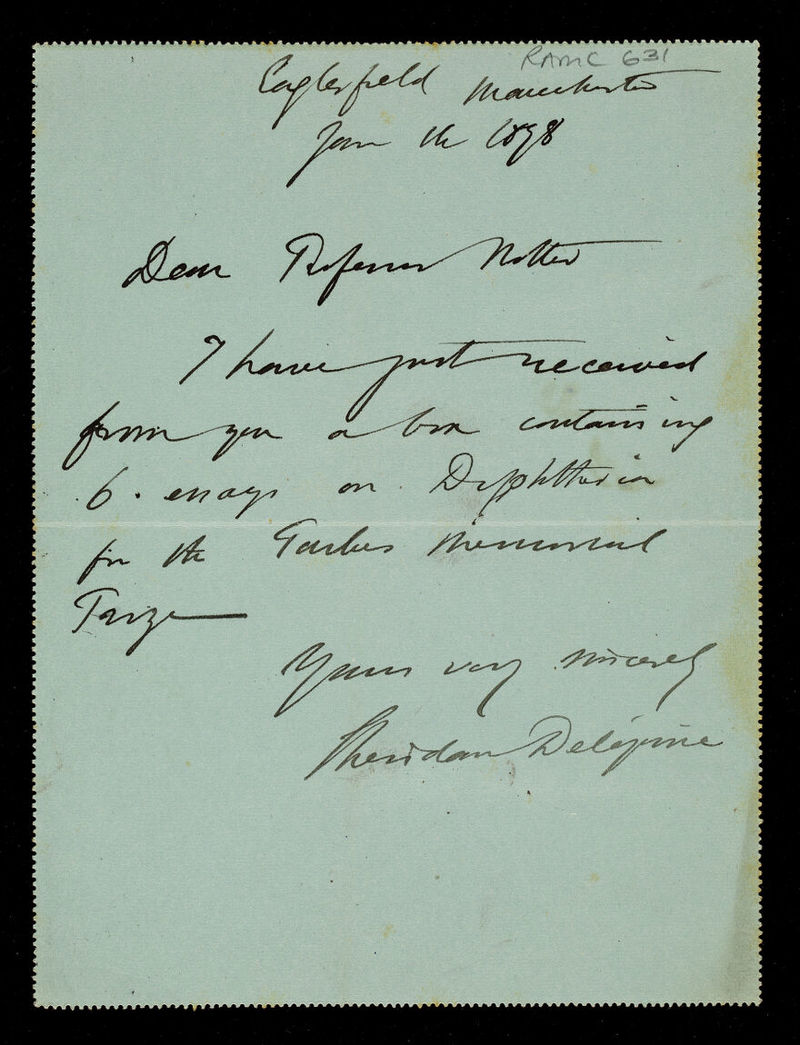 RAMC 631
Eaglesfield Manchester
Jan 1898
Dear Professor Notter
I have just received
from you a box containing
6 essays on Diphtheria
for the Parkes Memorial
Prize
Yours very sincerely
Sheridan Delépine